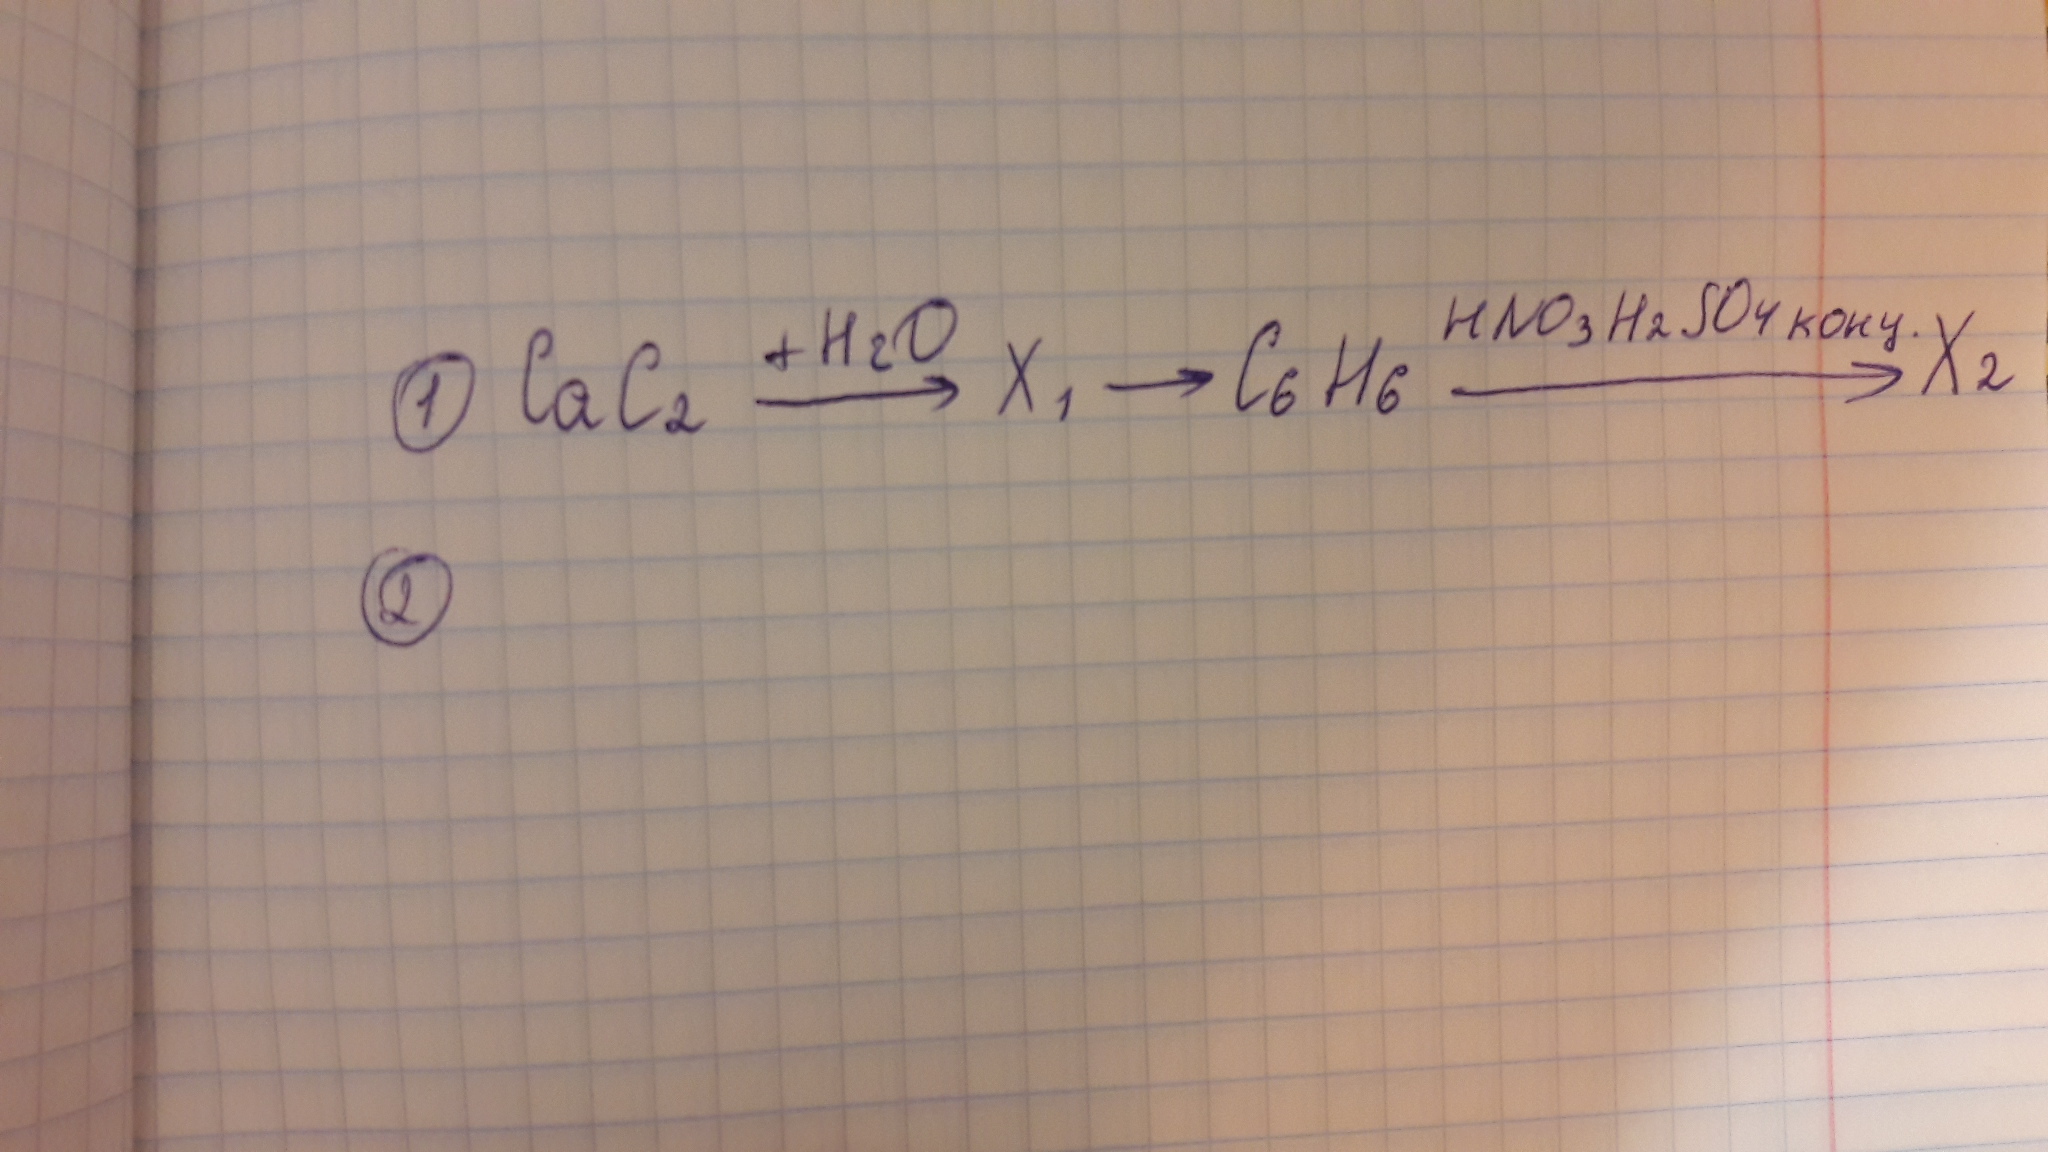 ① CaC₂ +H₂O → X₁ → C₆H₆ HNO₃ H₂SO₄ конц. → X₂
②